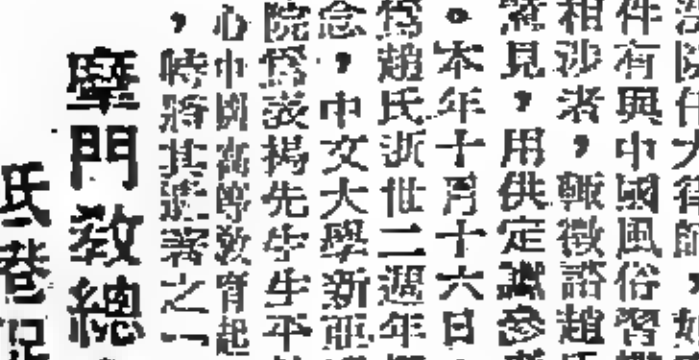 大律師，如
件有與中國風俗習
相涉者，輒徵諮趙
意見，用供定讞參
。本年十月十六日
爲趙氏逝世二週年
念，中文大學新亞
院爲表揚先生生平
心中國高等教育起
，特將其遺著之「
摩門教總
氏巷